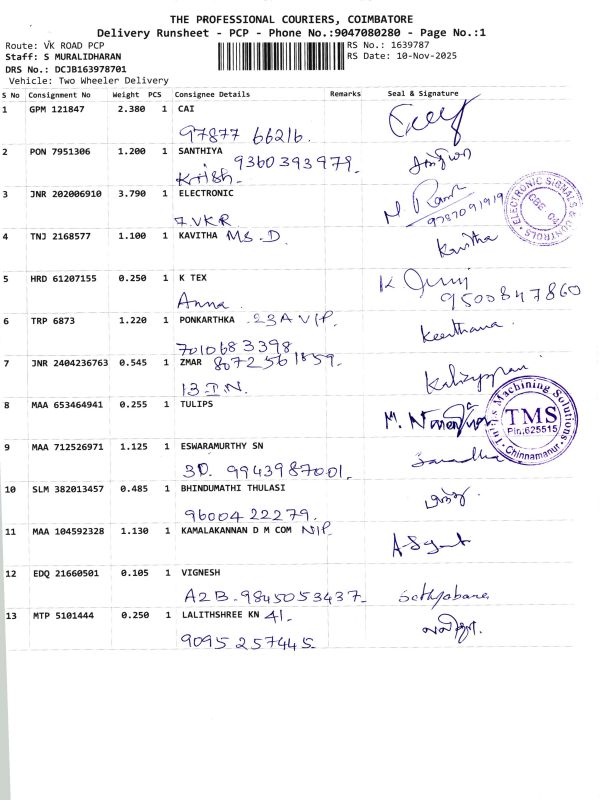 THE PROFESSIONAL COURIERS, COIMBATORE
Delivery Runsheet - PCP - Phone No.:9047080280 - Page No.:1
Route: VK ROAD PCP RS No.: 1639787
Staff: S MURALIDHARAN RS Date: 10-Nov-2025
DRS No.: DCJB163978701
Vehicle: Two Wheeler Delivery
S No Consignment No Weight PCS Consignee Details Remarks Seal & Signature
1 GPM 121847 2.380 1 CAI
97877 66216.
2 PON 7951306 1.200 1 SANTHIYA 9360393979.
Krish.
3 JNR 202006910 3.790 1 ELECTRONIC
7.VKR N Ram 9787091919
ELECTRONIC SIGNALS & CONTROLS
4 TNJ 2168577 1.100 1 KAVITHA MS.D. Kavitha
5 HRD 61207155 0.250 1 K TEX
Anna. 9500847860
6 TRP 6873 1.220 1 PONKARTHKA 23A VIP. Keerthana.
7010683398
7 JNR 2404236763 0.545 1 ZMAR 8072561859.
13 I.N.
8 MAA 653464941 0.255 1 TULIPS
Machining Solutions
TMS
Pin,625515
Chinnamanur.
9 MAA 712526971 1.125 1 ESWARAMURTHY SN
3D. 9943987001.
10 SLM 382013457 0.485 1 BHINDUMATHI THULASI
9600422279.
11 MAA 104592328 1.130 1 KAMALAKANNAN D M COM NIP.
12 EDQ 21660501 0.105 1 VIGNESH
A2B. 9845053437. Sathyabama
13 MTP 5101444 0.250 1 LALITHSHREE KN 41.
9095257445.